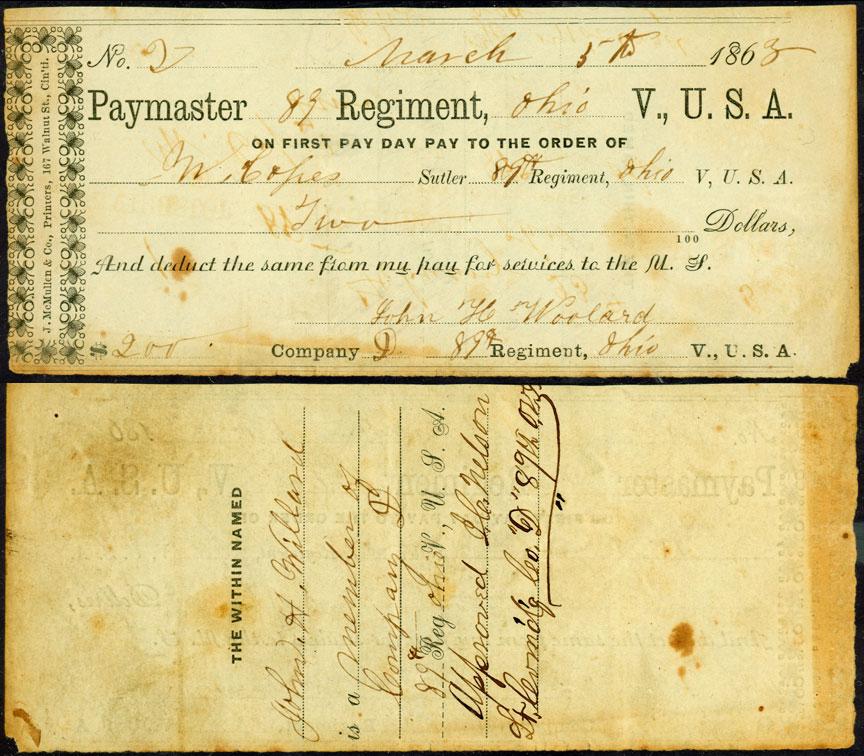 No. 2 March 5th 1863
Paymaster 89 Regiment, Ohio V., U. S. A.
ON FIRST PAY DAY PAY TO THE ORDER OF
W. Copes Sutler 89th Regiment, Ohio V, U. S. A.
Two 100 Dollars,
And deduct the same from my pay for services to the U. S.
John H Woolard
$ 2.00 Company D 89th Regiment, Ohio V., U. S. A.
J. McMullen & Co., Printers, 167 Walnut St., Cin'ti.
THE WITHIN NAMED
John H. Willard
is a member of
Company D
89th Reg Ohio V., U. S. A.
Approved Nelson
Lt. Comdg Co. "D" 89th O.V.